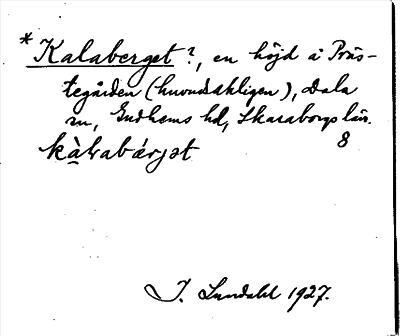 * Kalaberget?, en höjd å Präs-
tegården (huvudsakligen), Dala
sn, Gudhems hd, Skaraborgs län.
8
I. Lundahl 1927.